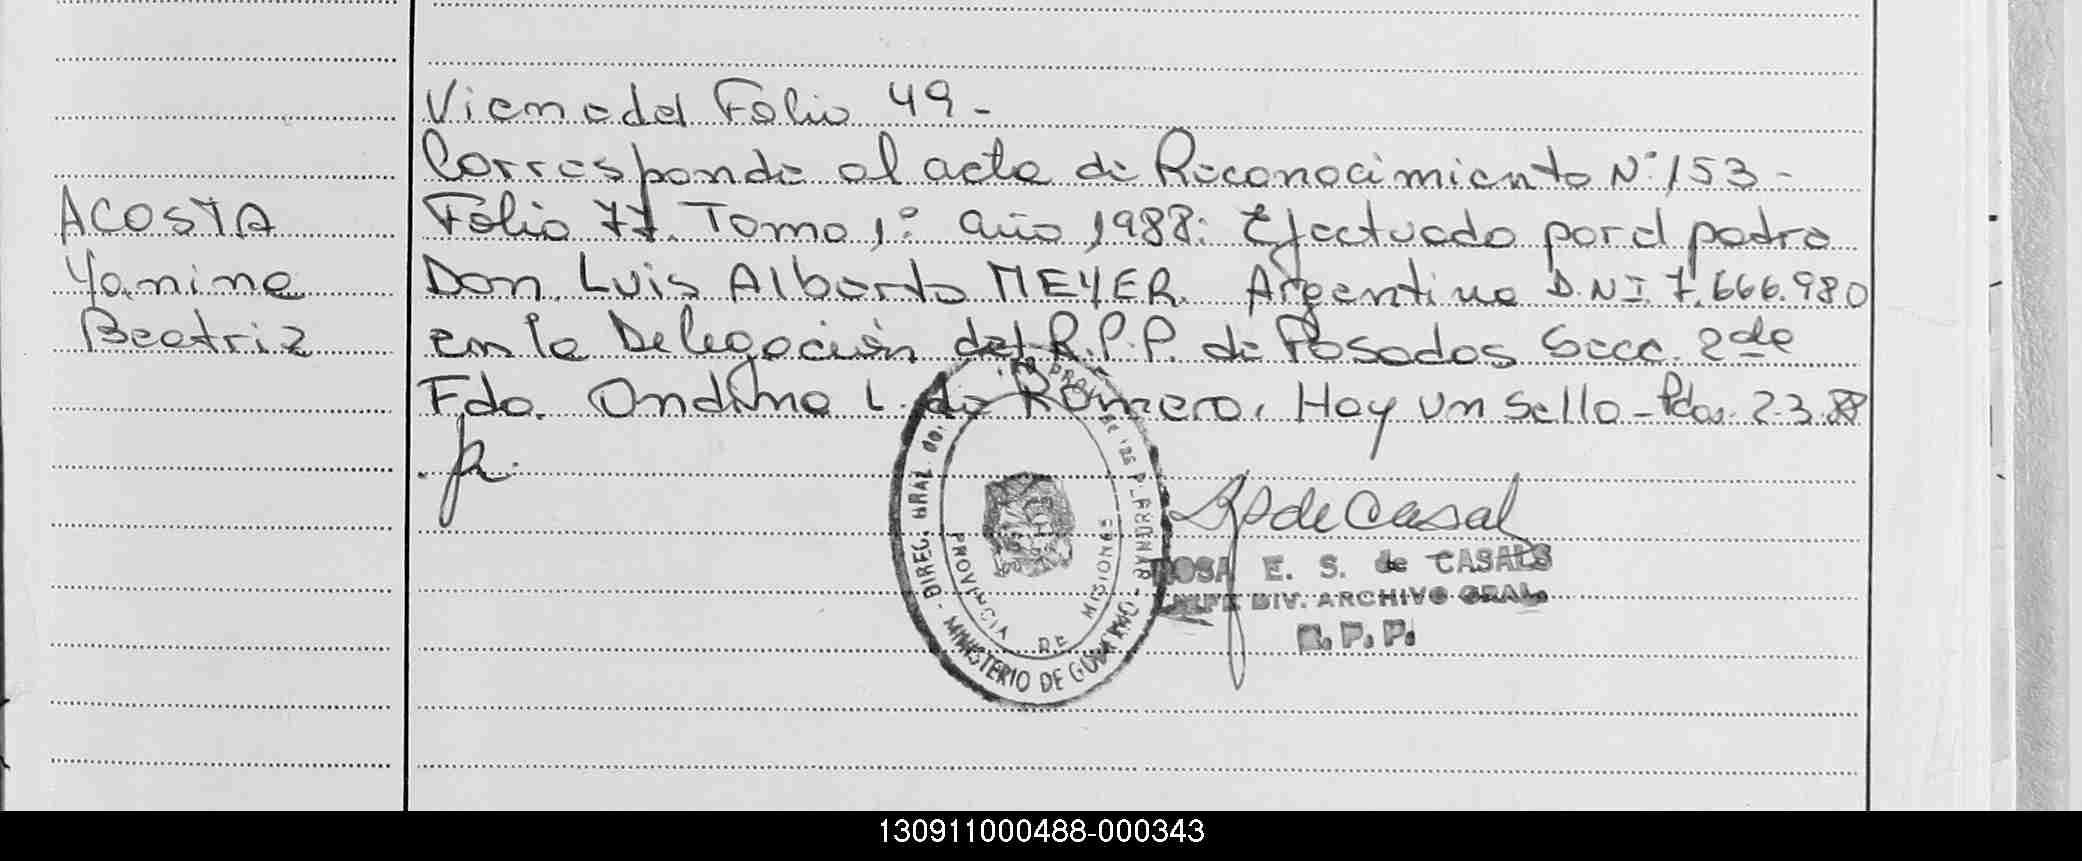 Viene del Folio 49-
Corresponde al acta de Reconocimiento N° 153-
ACOSTA
Folio 77. Tomo 1° año 1988: Efectuado por el padre
Yanina
Don Luis Alberto MEYER. Argentino D.N.I 7.666.980
Beatriz
en la Delegación del R.P.P. de Posadas Secc. 2da
Fdo. Ondina L. de Romero. Hay un Sello- Pdas. 2.3.88
DIREC. GRAL. DE PROV. DE LAS
MINISTERIO DE GOBIERNO
PROVINCIA DE MISIONES
R S de Casal
ROSA E. S. de CASALS
JEFE DIV. ARCHIVO GRAL.
R. P. P.
130911000488-000343